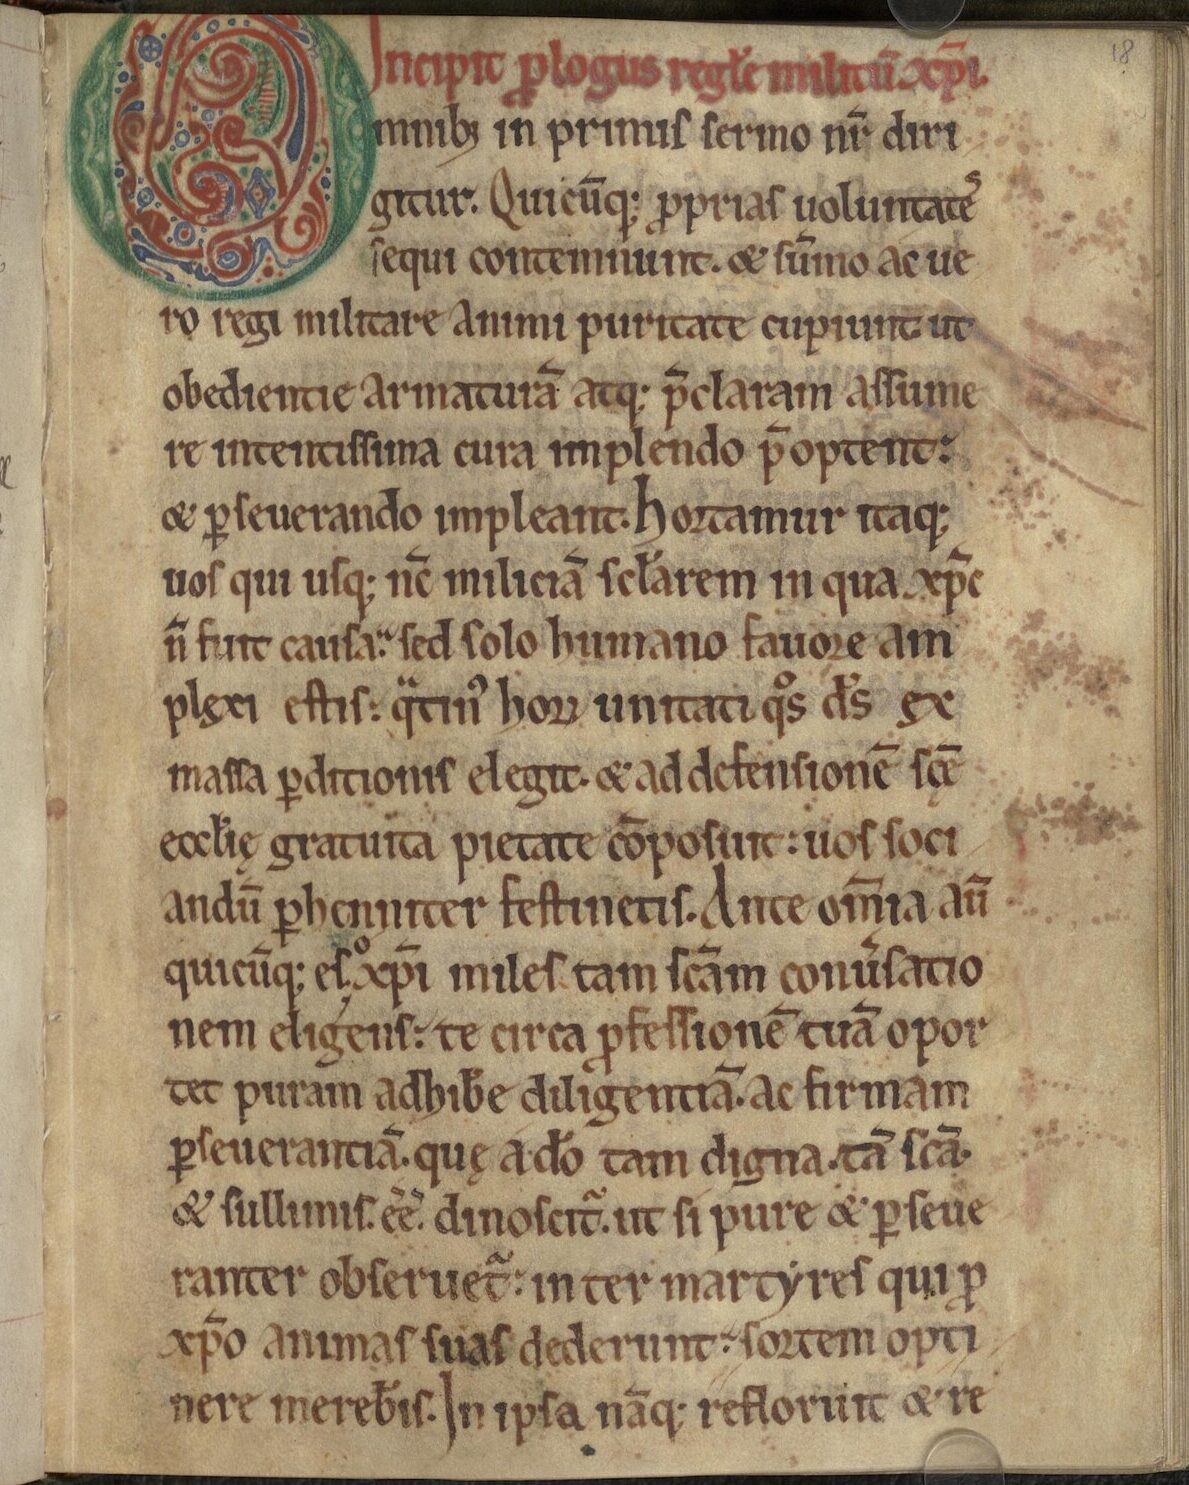 18
Incipit p̄logus regłe militū xp̄i.
Omnibꝫ in primis sermo nr̄ diri
gitur. Quicūq; ꝓprias uoluntatēs
sequi contemnunt. & sūmo ac ue
ro regi militare animi puritate cupiunt ut
obedientie armaturā atq; p̄claram assume
re intentissima cura implendo p̄optent:
& ꝑseuerando impleant. Hortamur itaq;
uos qui usq; nc̄ miliciā scłarem in qua xp̄c
n̄ fuit causa: sed solo humano fauore am
plexi estis: qᵃtinꝰ hoꝝ unitati qͦs dꝰs ex
massa ꝑditionis elegit. & ad defensionē scē
eccłię gratuita pietate cōposuit: uos soci
andū ꝑhenniter festinetis. Ante om̄ia aū
quicūq; es, oͦ xp̄i miles tam scām conūsatio
nem eligens: te circa ꝓfessionē tuā opor
tet puram adhib̄e diligentiā. ac firmam
ꝑseuerantiā. quę a do tam digna. tā scā.
& sullimis. ēē. dinoscit̄. ut si pure & ꝑseue
ranter obseruet̄: inter martyres qui ꝓ
xp̄o animas suas dederunt: sortem opti
nere mereb̄is. In ipsa nāq; refloruit & re